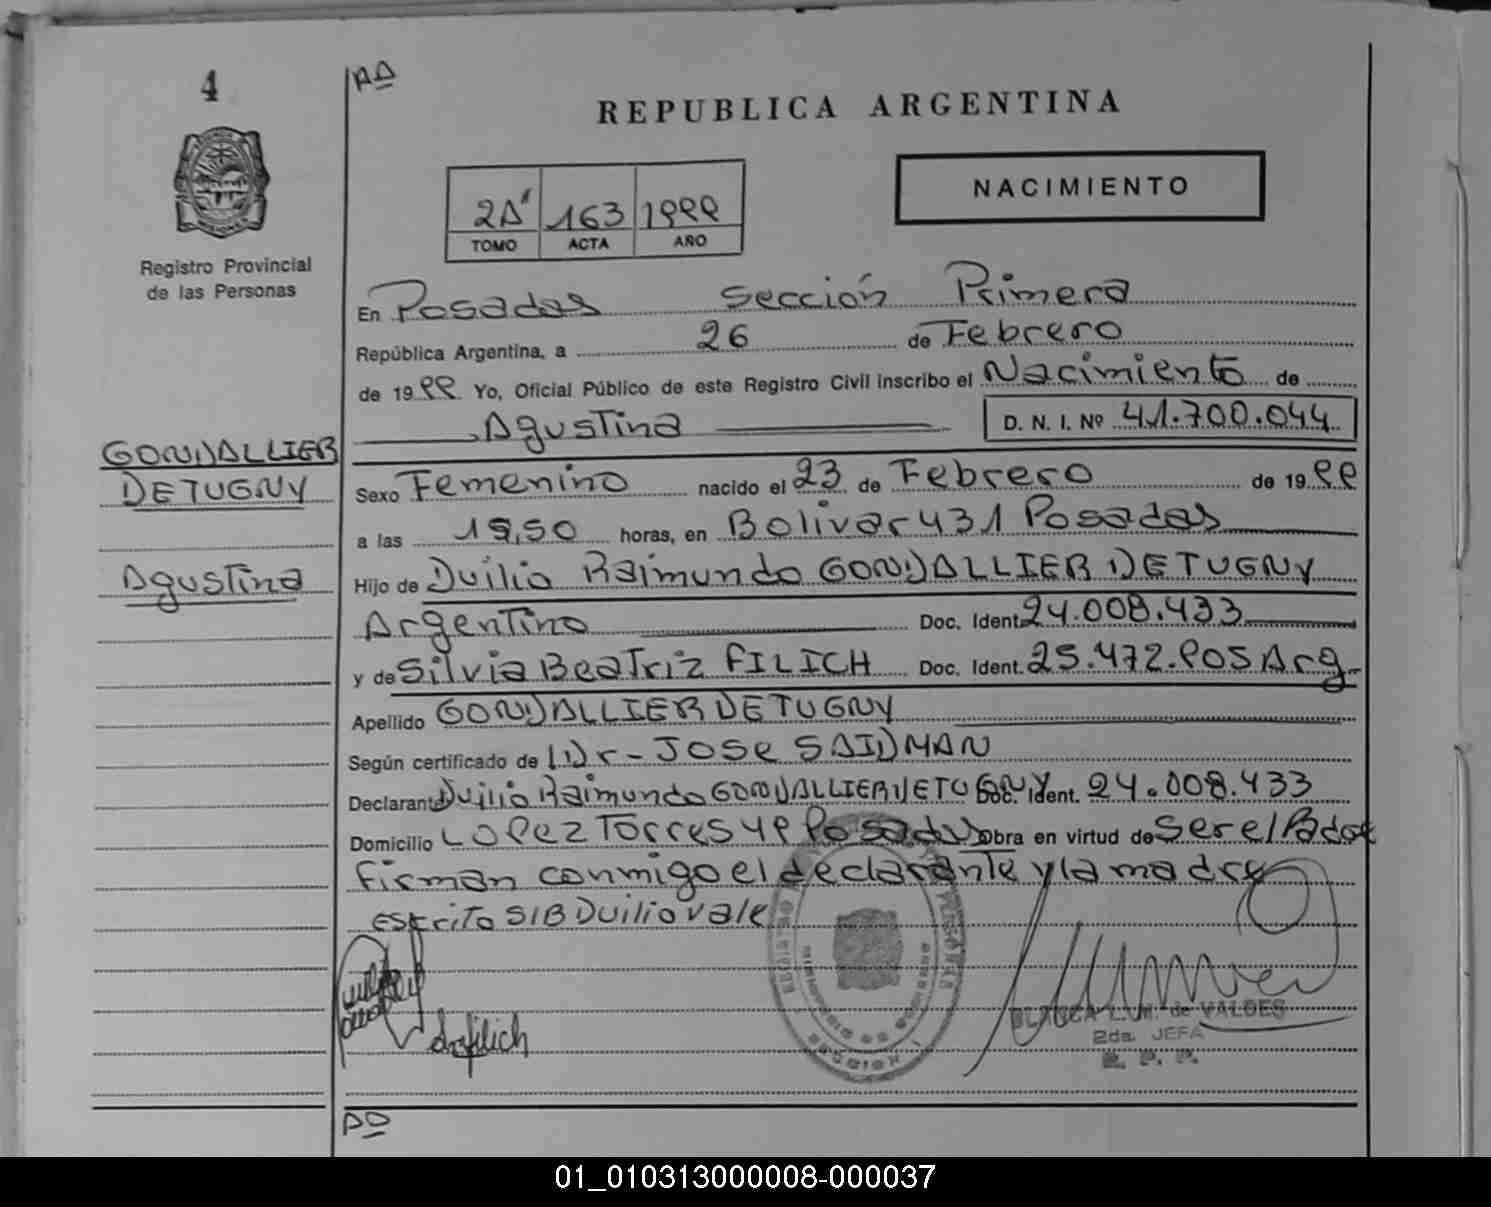 4
AD
REPUBLICA ARGENTINA
NACIMIENTO
2A 163 1999
TOMO ACTA AÑO
Registro Provincial
de las Personas
En Posadas Sección Primera
República Argentina, a 26 de Febrero
de 1999 Yo, Oficial Público de este Registro Civil inscribo el Nacimiento de
Agustina D. N. I. Nº 41.700.044
GONDALLIER
DETUGNY
Agustina
Sexo Femenino nacido el 23 de Febrero de 1999
a las 19,50 horas, en Bolivar 431 Posadas
Hijo de Duilio Raimundo GONDALLIER DETUGNY
Argentino Doc. Ident. 24.008.433
y de Silvia Beatriz FILICH Doc. Ident. 25.472.905 Arg
Apellido GONDALLIER DETUGNY
Según certificado de Dr- Jose SAIDMAN
Declarante Duilio Raimundo GONDALLIER DETUGNY Doc. Ident. 24.008.433
Domicilio Lopez Torres 49 Posadas obra en virtud de Ser el Padre
Firman conmigo el declarante y la madre
Escrito S/B Duilio vale
BLANCA L.M. de VALDES
2da. JEFA
R. P. P.
01_010313000008-000037